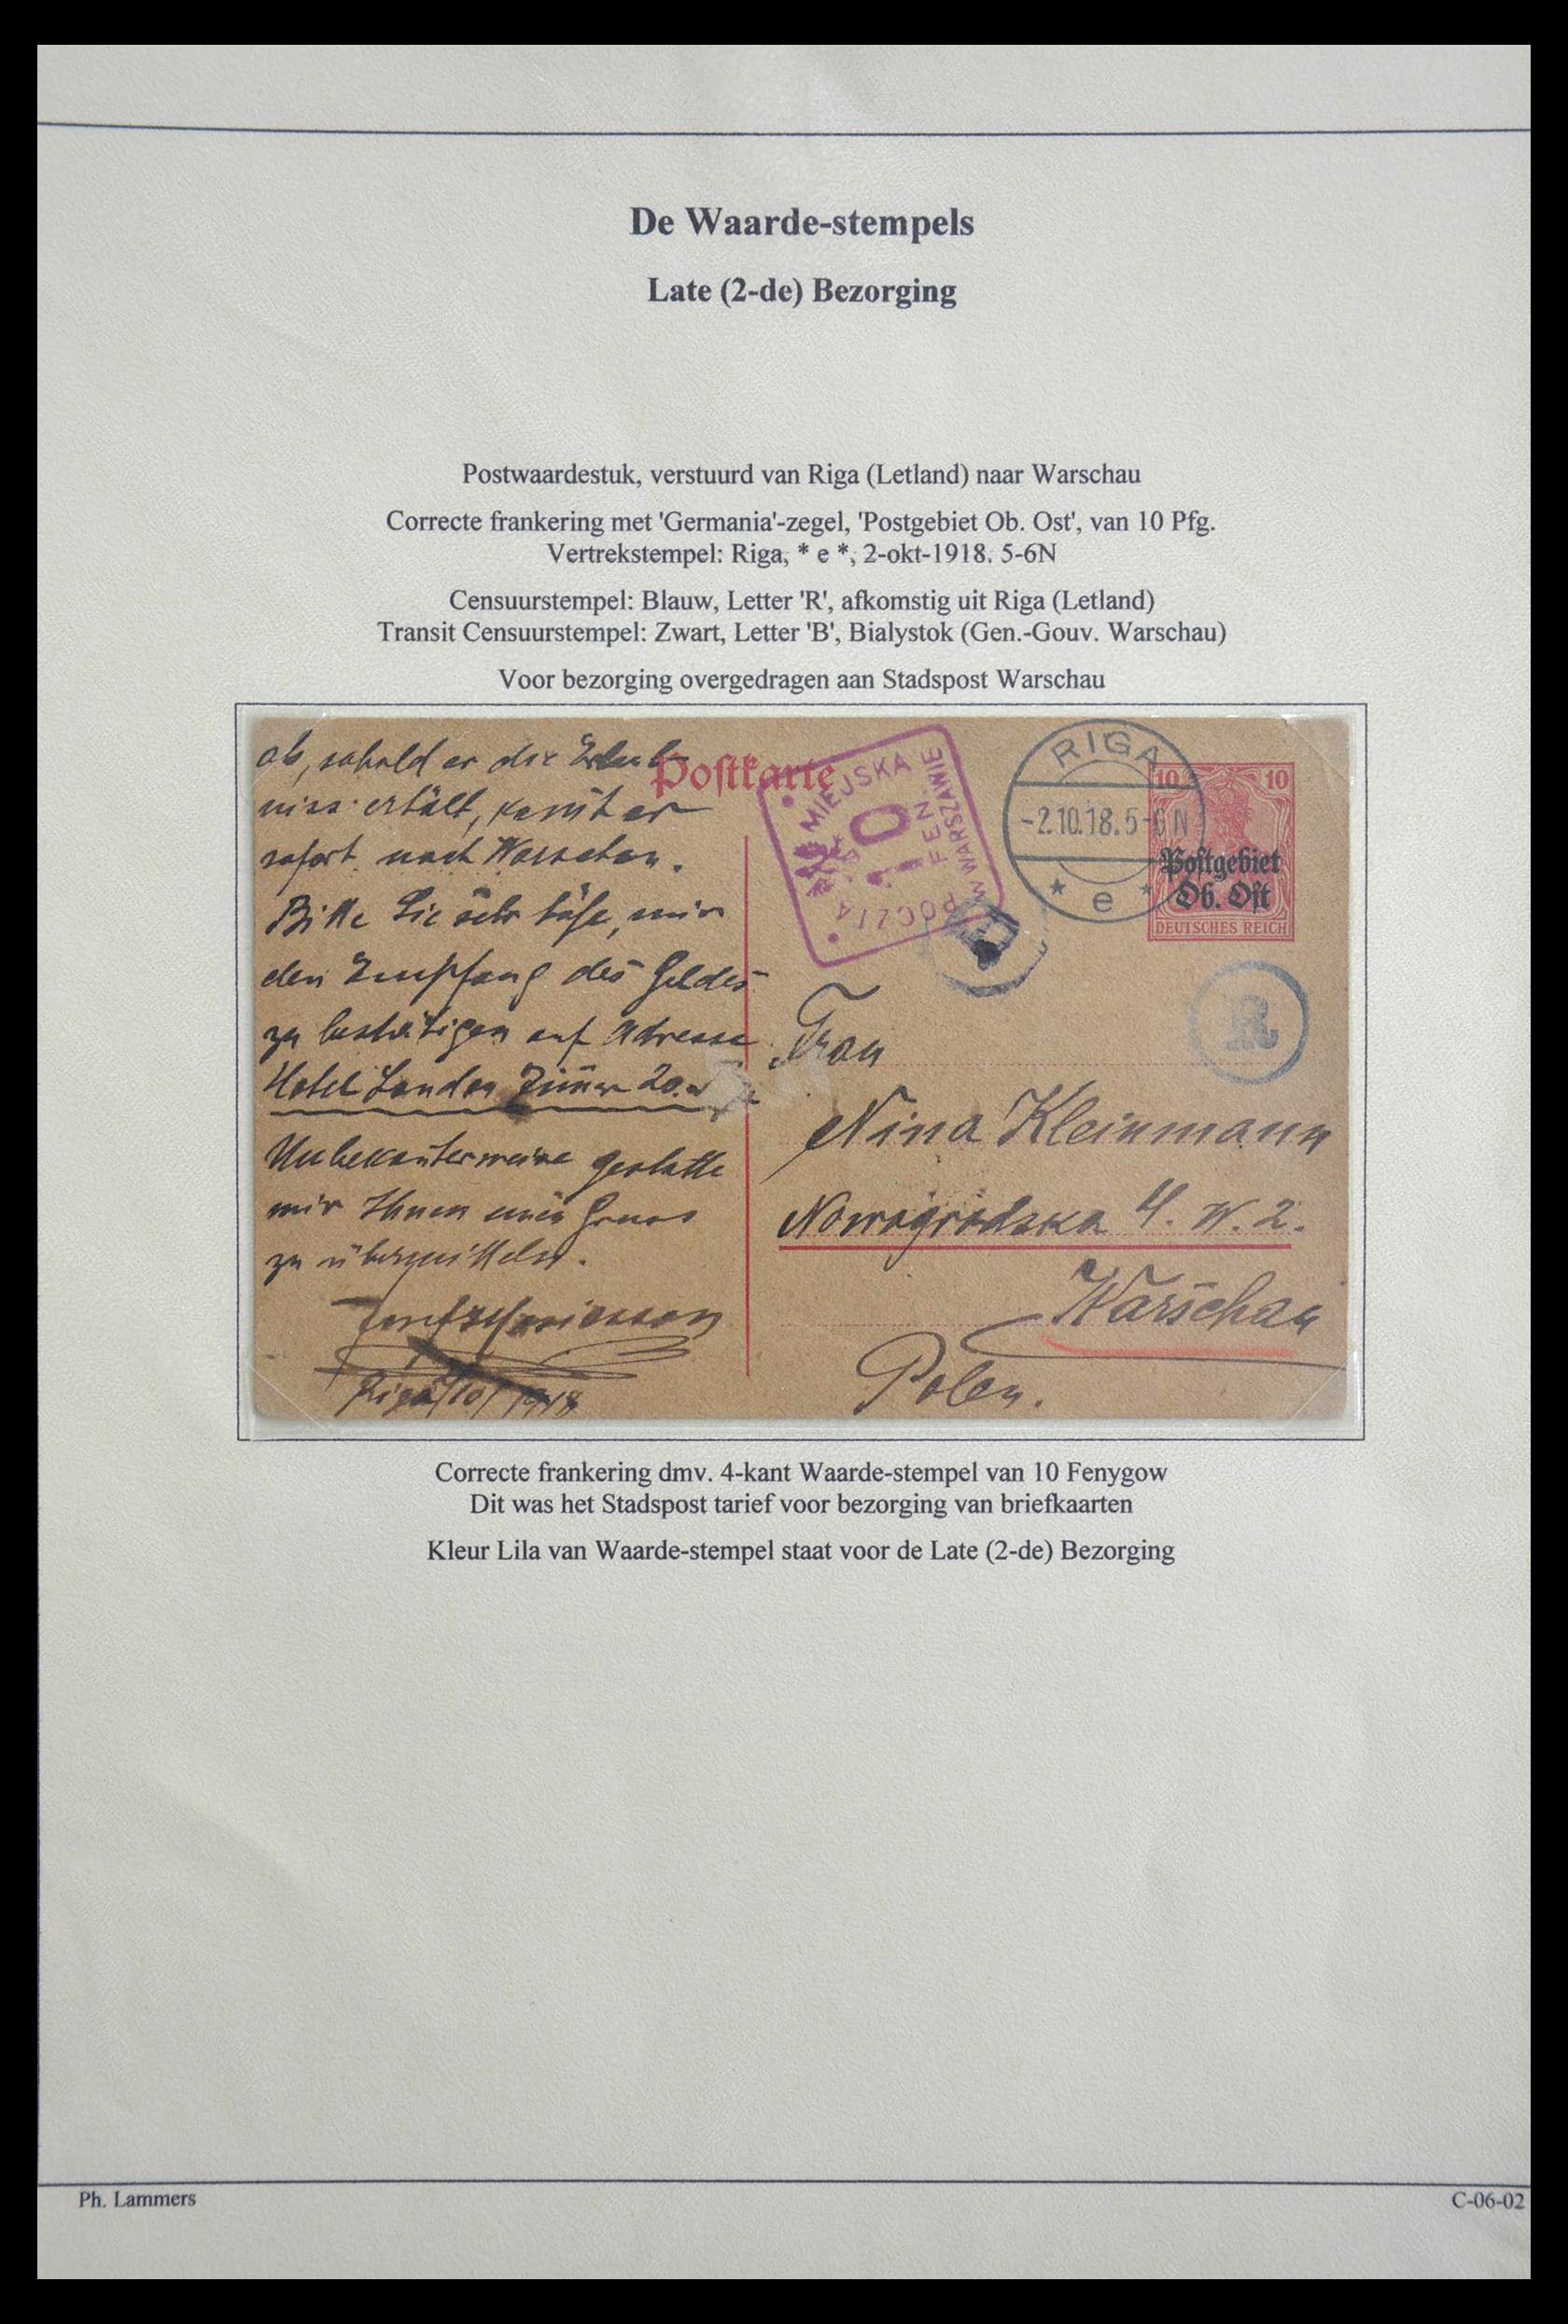 De Waarde-stempels
Late (2-de) Bezorging
Postwaardestuk, verstuurd van Riga (Letland) naar Warschau
Correcte frankering met 'Germania'-zegel, 'Postgebiet Ob. Ost', van 10 Pfg.
Vertrekstempel: Riga, * e *, 2-okt-1918. 5-6N
Censuurstempel: Blauw, Letter 'R', afkomstig uit Riga (Letland)
Transit Censuurstempel: Zwart, Letter 'B', Bialystok (Gen.-Gouv. Warschau)
Voor bezorging overgedragen aan Stadspost Warschau
ab, sobald er die Erlaub-
niss erhält, kommt er
sofort nach Warschau.
Bitte Sie sehr höfl, mir
den Empfang des Geldes
zu bestätigen auf Adresse
Hotel London Zimmer 20.
Unbekanterweise gestatte
mir Ihnen einen Gruss
zu übermitteln.
Riga /10/ 1918
Postkarte
POCZTA MIEJSKA
W WARSZAWIE
10
FEN.
RIGA
-2.10.18.5-6N
* e *
10 10
Postgebiet
Ob. Ost
DEUTSCHES REICH
R
Frau
Nina Kleinmann
Nowogrodska 4. W. 2.
Warschau
Polen.
Correcte frankering dmv. 4-kant Waarde-stempel van 10 Fenygow
Dit was het Stadspost tarief voor bezorging van briefkaarten
Kleur Lila van Waarde-stempel staat voor de Late (2-de) Bezorging
Ph. Lammers
C-06-02